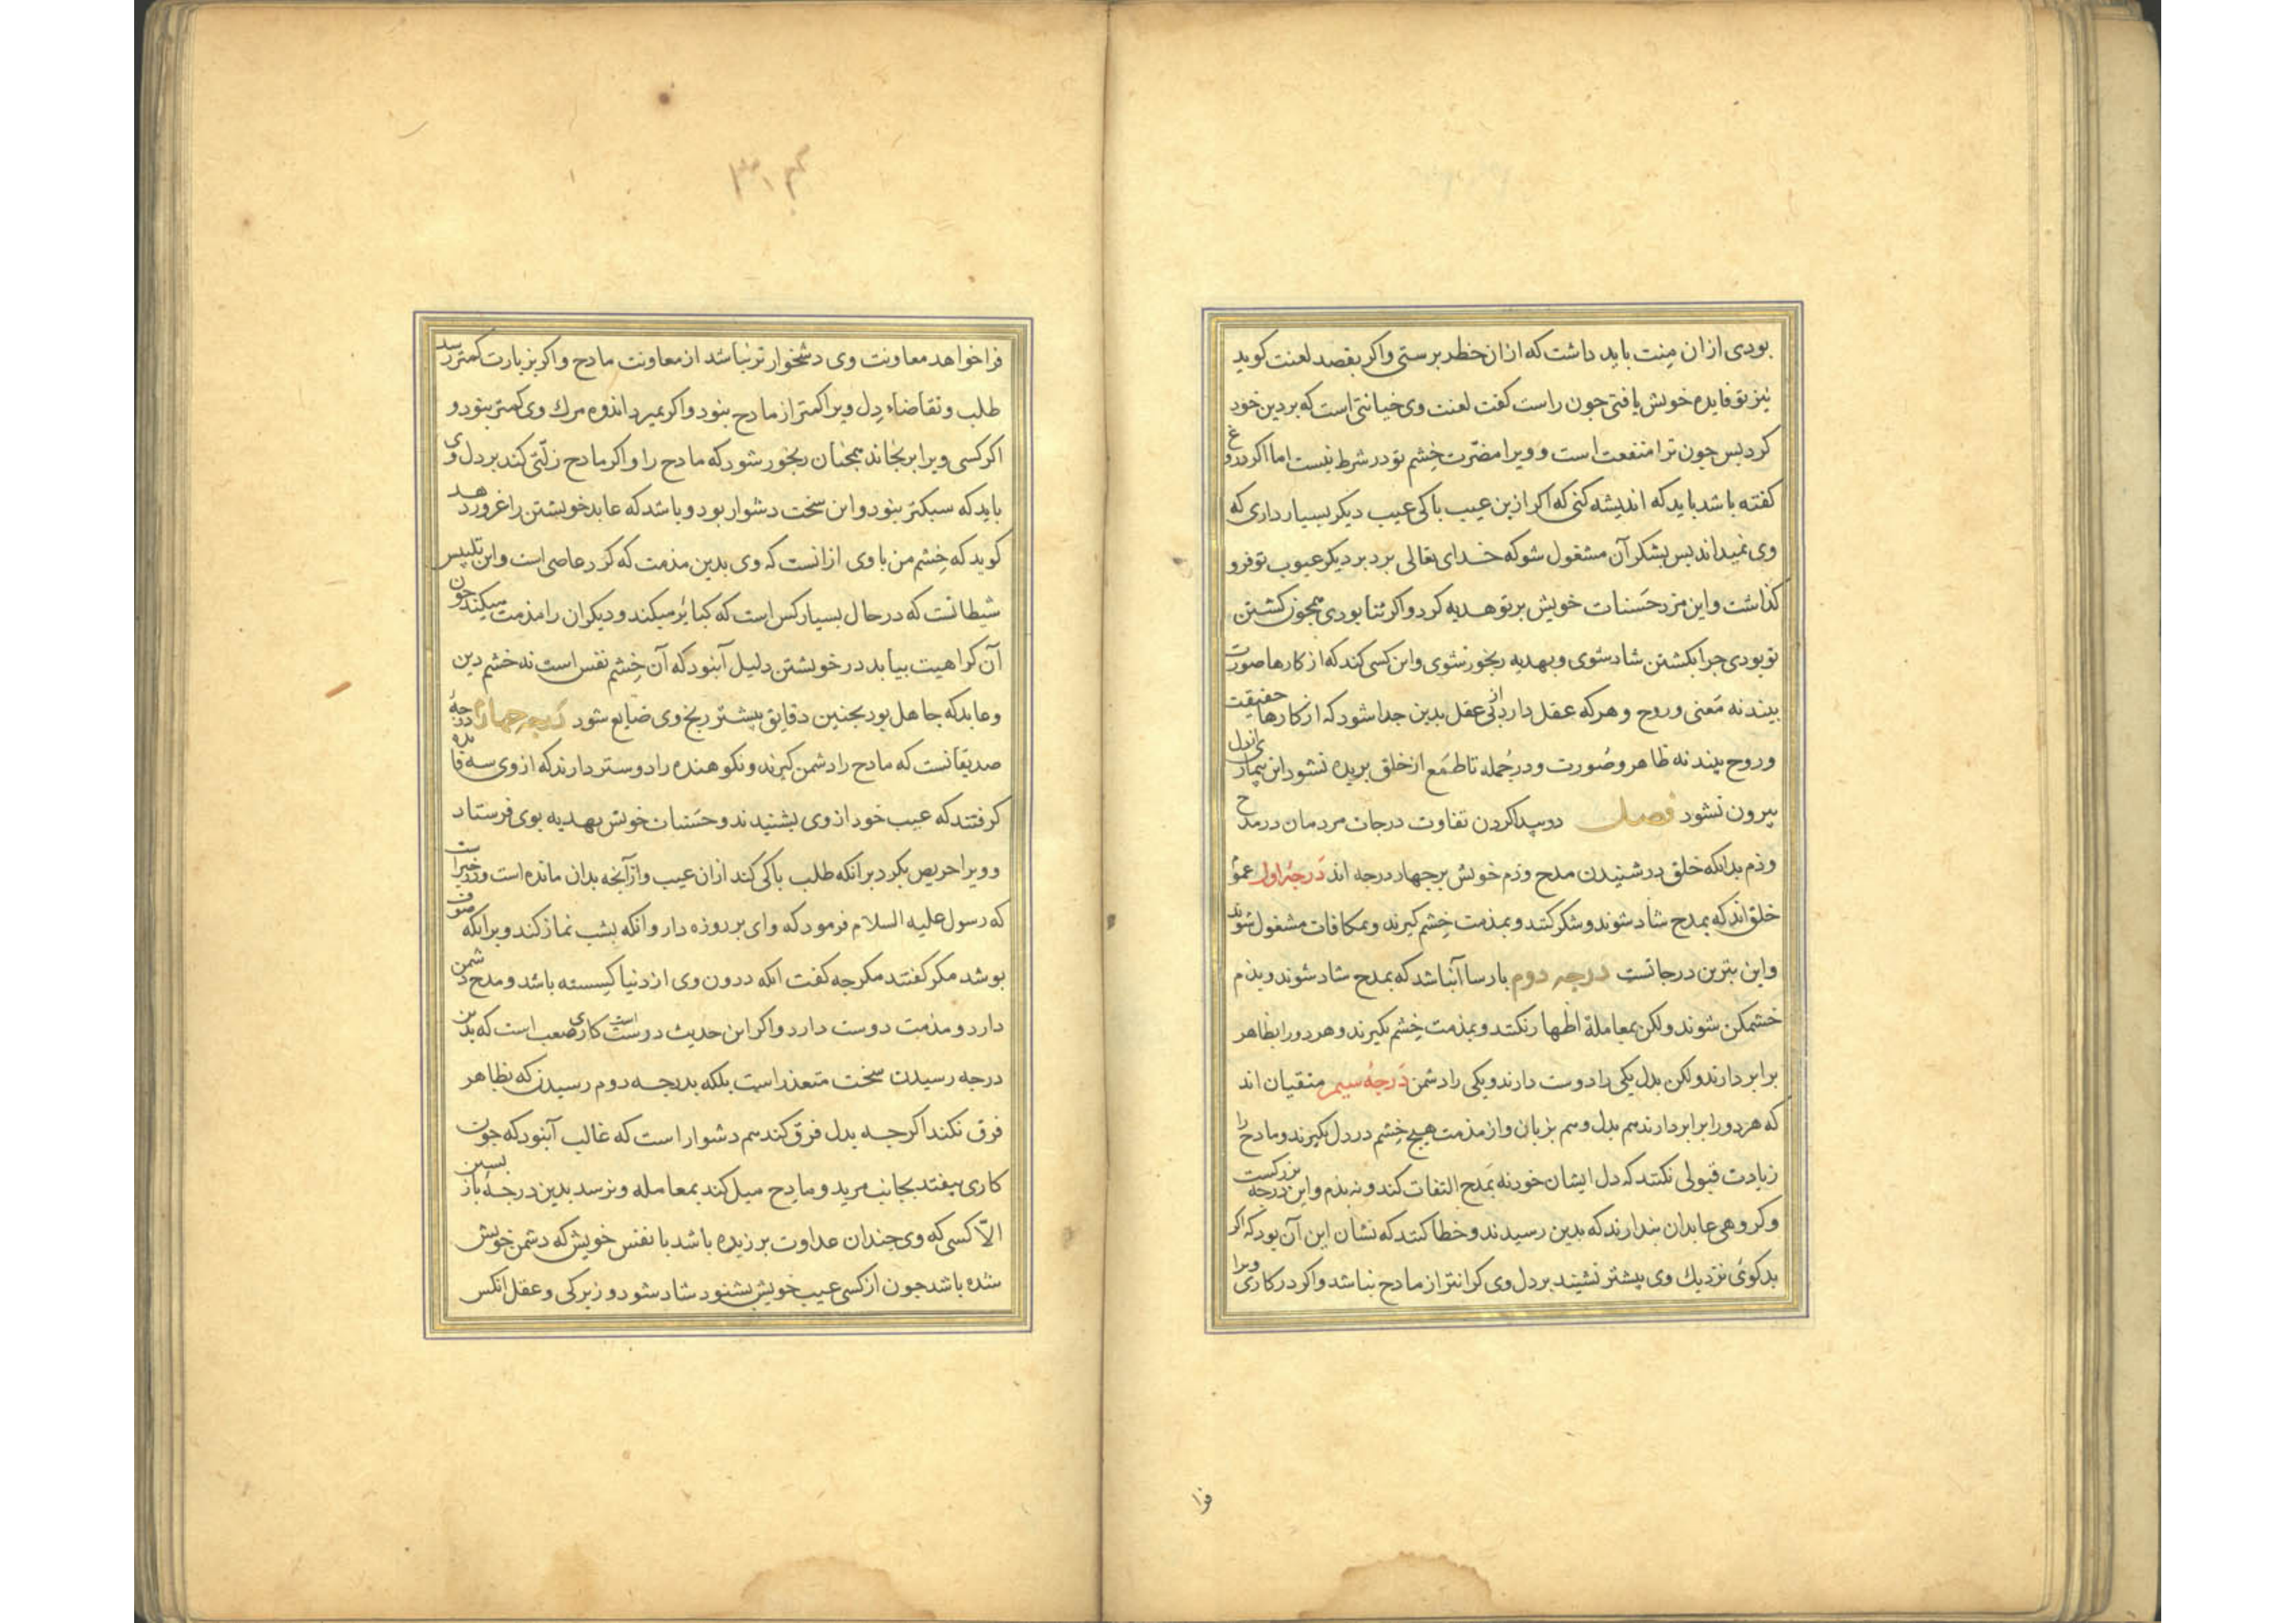 بودی ازان مِنت باید داشت که ازان خطر برستی واکر بقصد لعنت کوید
نیز تو فایده خویش یافتی جون راست کفت لعنت وی خیانتی است که بر دین خود
کرد بس جون ترا منفعت است و ویرا مضرّت خِشم تو در شرط نیست اما اکر دروغ
کفته باشد باید که اندیشه کنی که اکر ازین عیب باکی عیب دیکر بسیار داری که
وی نمیداند بس بشکر آن مشغول شو که خدای تعالی برد بر دیکر عیوب تو فرو
کذاشت واین مرد حَسَنات خویش بر تو هدیه کرد واکر ثنا بودی همجون کشتن
تو بودی جرا بکشتن شاد شوی و بهدیه رنجور نشوی واین کسی کند که از کارها صورت
بیند نه مَعنی و روح و هرکه عقل دارد از بی عقل بدین جدا شود که از کارها حقیقت
و روح بیند نه ظاهر و صُورت و در جُمله تا طَمَع از خلق بریده نشود این بیماری از دل
بیرون نشود فصل در پیدا کردن تفاوت درجات مردمان در مدح
و ذم بدانکه خلق در شنیدن مدح و ذم خویش بر جهار درجه اند دَرجهٔ اول عموم
خلق اند که بمدح شاد شوند و شکر کنند و بمذمت خِشم کیرند و بمکافات مشغول شوند
واین بترین درجاتست درجه دوم بارسا آنباشد که بمدح شاد شوند و بذم
خشمکن شوند ولکن بمعاملهٔ اظهار نکنند و بمذمت خِشم نکیرند و هر دورا بظاهر
برابر دارند ولکن بدل یکی را دوست دارند و یکی را دشمن دَرجهٔ سیم متقیان اند
که هر دورا برابر دارند هم بدل و هم بزبان و از مذمت هیج خِشم در دل نکیرند و مادح را
زیادت قبولی نکنند که دل ایشان خود نه بمَدح التفات کند و نه بذم و این درجه بزرکست
و کروهی عابدان بندارند که بدین رسیدند و خطا کنند که نشان این آن بود که اکر
بدکوئی نزدیك وی بیشتر نشیند بر دل وی کرانتر از مادح نباشد واکر در کاری ویرا
فرا
فرا خواهد معاونت وی دشخوارتر نباشد از معاونت مادح واکر بزیارت کمتر رسد
طلب و تقاضاء دِل ویرا کمتر از مادح بنود واکر بمیرد اندوه مرك وی کمتر بنود و
اکر کسی ویرا برنجاند همجنان رنجور شود که مادح را واکر مادح زلّتی کند بر دل وی
باید که سبکتر بنود و این سخت دشوار بود و باشد که عابد خویشتن را غرور دهد
کوید که خِشم من با وی ازانست که وی بدین مذمت که کرد عاصی است واین تلبیس
شیطانست که در حال بسیار کس است که کبائر میکند و دیکران را مذمت میکند جون
آن کراهیت بیابد در خویشتن دلیل آنبود که آن خِشم نفس است نه خشم دین
و عابد که جاهل بود بجنین دقایق بیشتر رنج وی ضایع شود دَرجهٔ جهارم درجهٔ
صدیقانست که مادح را دشمن کیرند و نکوهنده را دوستر دارند که از وی سه فایده
کرفتند که عیب خود از وی بشنیدند و حَسَنات خویش بهدیه بوی فرستاد
و ویرا حریص بکرد برانکه طلب باکی کند ازان عیب و از آنجه بدان مانده است و در خبر است
که رسول علیه السلام فرمود که وای بر روزه دار و انکه بشب نماز کند و برانکه صوف
بوشد مکر کفتند مکر جه کفت انکه درون وی از دنیا کیسسته باشد و مدح دشمن
دارد و مذمت دوست دارد واکر این حدیث درست است کاری صعب است که بدین
درجه رسیدن سخت متعذر است بلکه بدرجه دوم رسیدن که بظاهر
فرق نکند اکرجه بدل فرق کند هم دشوار است که غالب آنبود که جون
کاری بیفتد بجانب مرید و مادح میل کند بمعامله و نرسد بدین درجهٔ باز بسین
الّا کسی که وی جندان عداوت برزیده باشد با نفس خویش که دشمن خویش
شده باشد جون از کسی عیب خویش بشنود شاد شود و زیرکی و عقل انکس